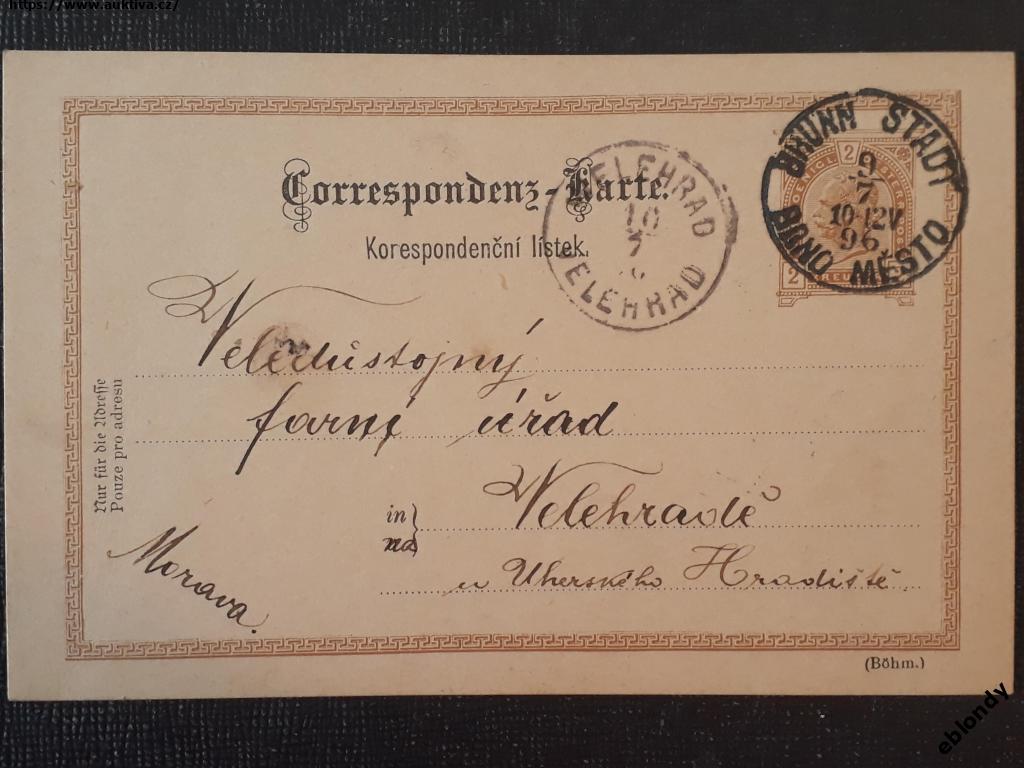 https://www.auktiva.cz/
Correspondenz-Karte.
Korespondenční lístek.
BRÜNN STADT
9
7
10-12V
96
BRNO MĚSTO
2
2
VELEHRAD
10
7
VELEHRAD
Veledůstojný
farní úřad
in
na
Velehradě
u Uherského Hradiště
Morava.
Nur für die Adresse
Pouze pro adresu
(Böhm.)
eblondy